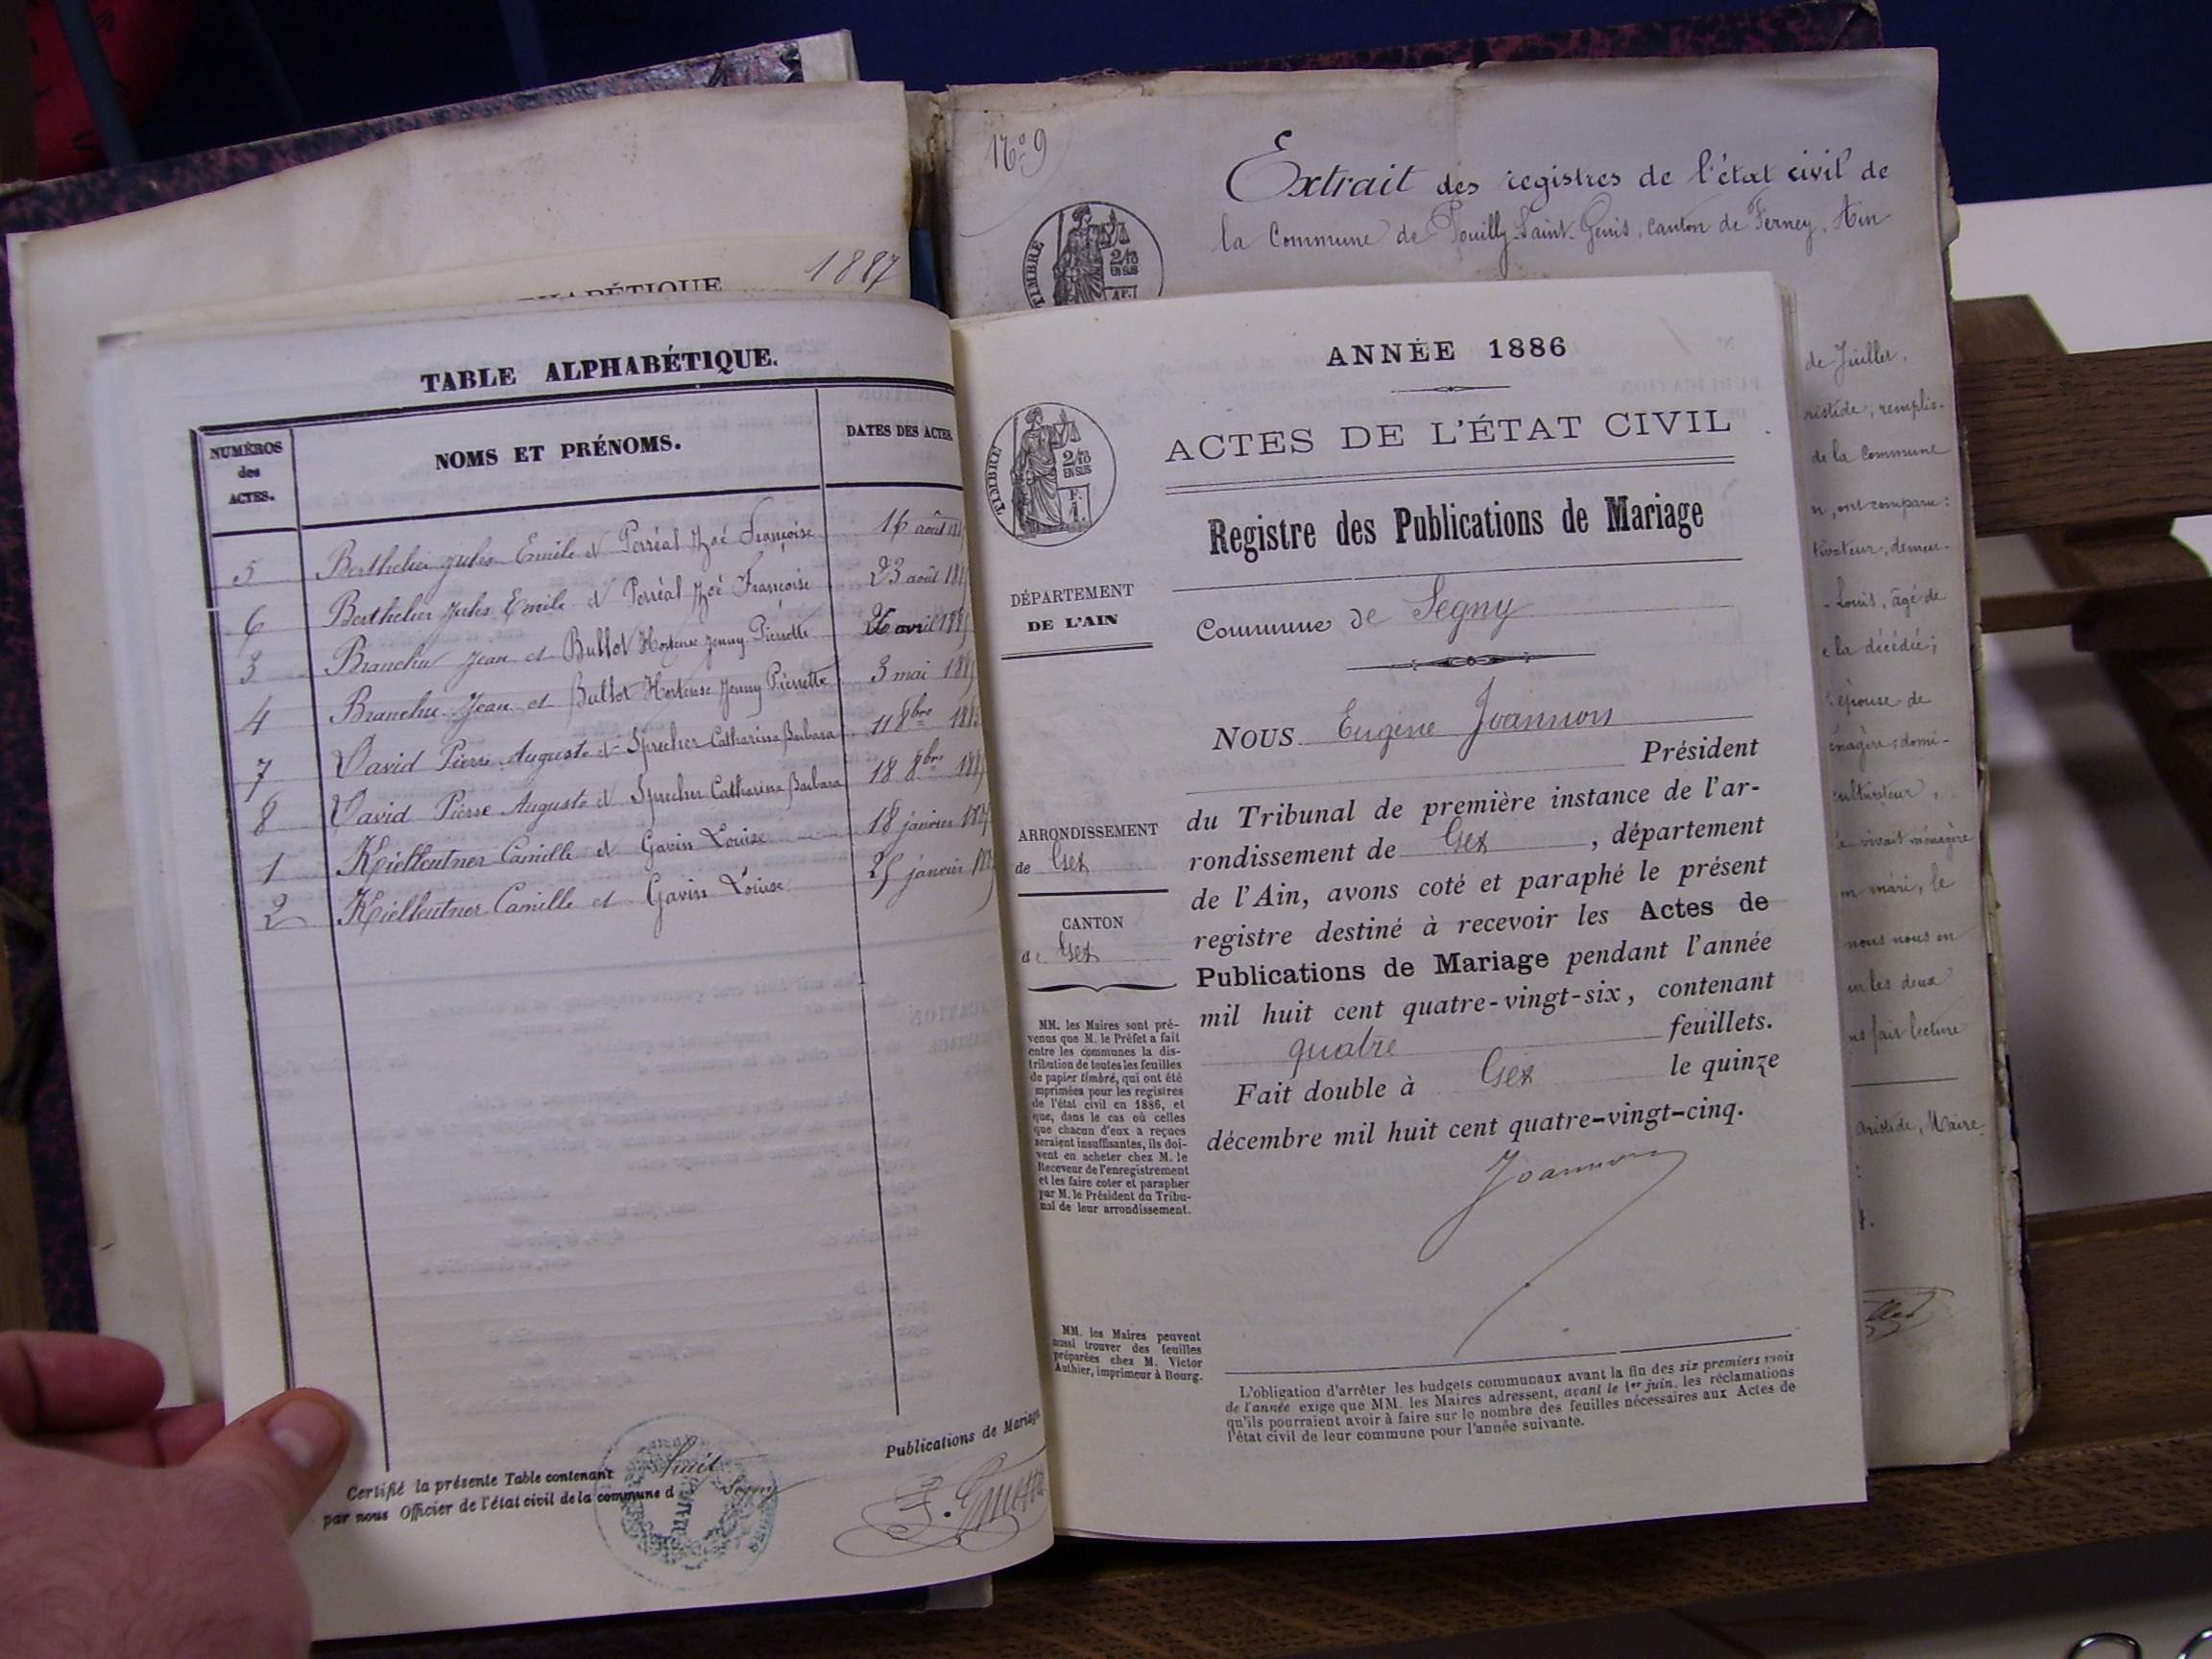 1887
TABLE ALPHABÉTIQUE.
NUMÉROS
des
ACTES.
NOMS ET PRÉNOMS.
DATES DES ACTES.
5 Berthelier Jules Emile et Perréal Zoé Françoise 16 août
6 Berthelier Jules Emile et Perréal Zoé Françoise 23 août
3 Branchu Jean et Bullot Hortense Jenny Pierrette 26 avril
4 Branchu Jean et Bullot Hortense Jenny Pierrette 3 mai
7 David Pierre Auguste et Sprecher Catharina Barbara 11 8bre
8 David Pierre Auguste et Sprecher Catharina Barbara 18 8bre
1 Camille et Gavin Louise 18 janvier
2 Camille et Gavin Louise 25 janvier
Publications de Mariage
Certifié la présente Table contenant huit
par nous Officier de l'état civil de la commune d Segny
No 9
Extrait des registres de l'état civil de
la Commune de Pouilly-Saint-Genis, canton de Ferney, Ain
TIMBRE
2/10
EN SUS
ANNÉE 1886
TIMBRE
2/10
EN SUS
F.
1.
ACTES DE L'ÉTAT CIVIL
Registre des Publications de Mariage
DÉPARTEMENT
DE L'AIN
Commune de Segny
NOUS Eugène Joannon
Président
du Tribunal de première instance de l'ar-
rondissement de Gex, département
de l'Ain, avons coté et paraphé le présent
registre destiné à recevoir les Actes de
Publications de Mariage pendant l'année
mil huit cent quatre-vingt-six, contenant
quatre feuillets.
Fait double à Gex le quinze
décembre mil huit cent quatre-vingt-cinq.
Joannon
ARRONDISSEMENT
de Gex
CANTON
de Gex
MM. les Maires sont pré-
venus que M. le Préfet a fait
entre les communes la dis-
tribution de toutes les feuilles
de papier timbré, qui ont été
imprimées pour les registres
de l'état civil en 1886, et
que, dans le cas où celles
que chacun d'eux a reçues
seraient insuffisantes, ils doi-
vent en acheter chez M. le
Receveur de l'enregistrement
et les faire coter et parapher
par M. le Président du Tribu-
nal de leur arrondissement.
MM. les Maires peuvent
aussi trouver des feuilles
préparées chez M. Victor
Authier, imprimeur à Bourg.
L'obligation d'arrêter les budgets communaux avant la fin des six premiers mois
de l'année exige que MM. les Maires adressent, avant le 1er juin, les réclamations
qu'ils pourraient avoir à faire sur le nombre des feuilles nécessaires aux Actes de
l'état civil de leur commune pour l'année suivante.
de Juillet,
ristide, remplis-
de la commune
n, ont comparu:
tivateur, demeu-
Louis, âgé de
e la décédée;
épouse de
énagère, domi-
cultivateur,
vivait ménagère
n mari, le
nous nous en
ur les deux
ns fait lecture
aristide, Maire